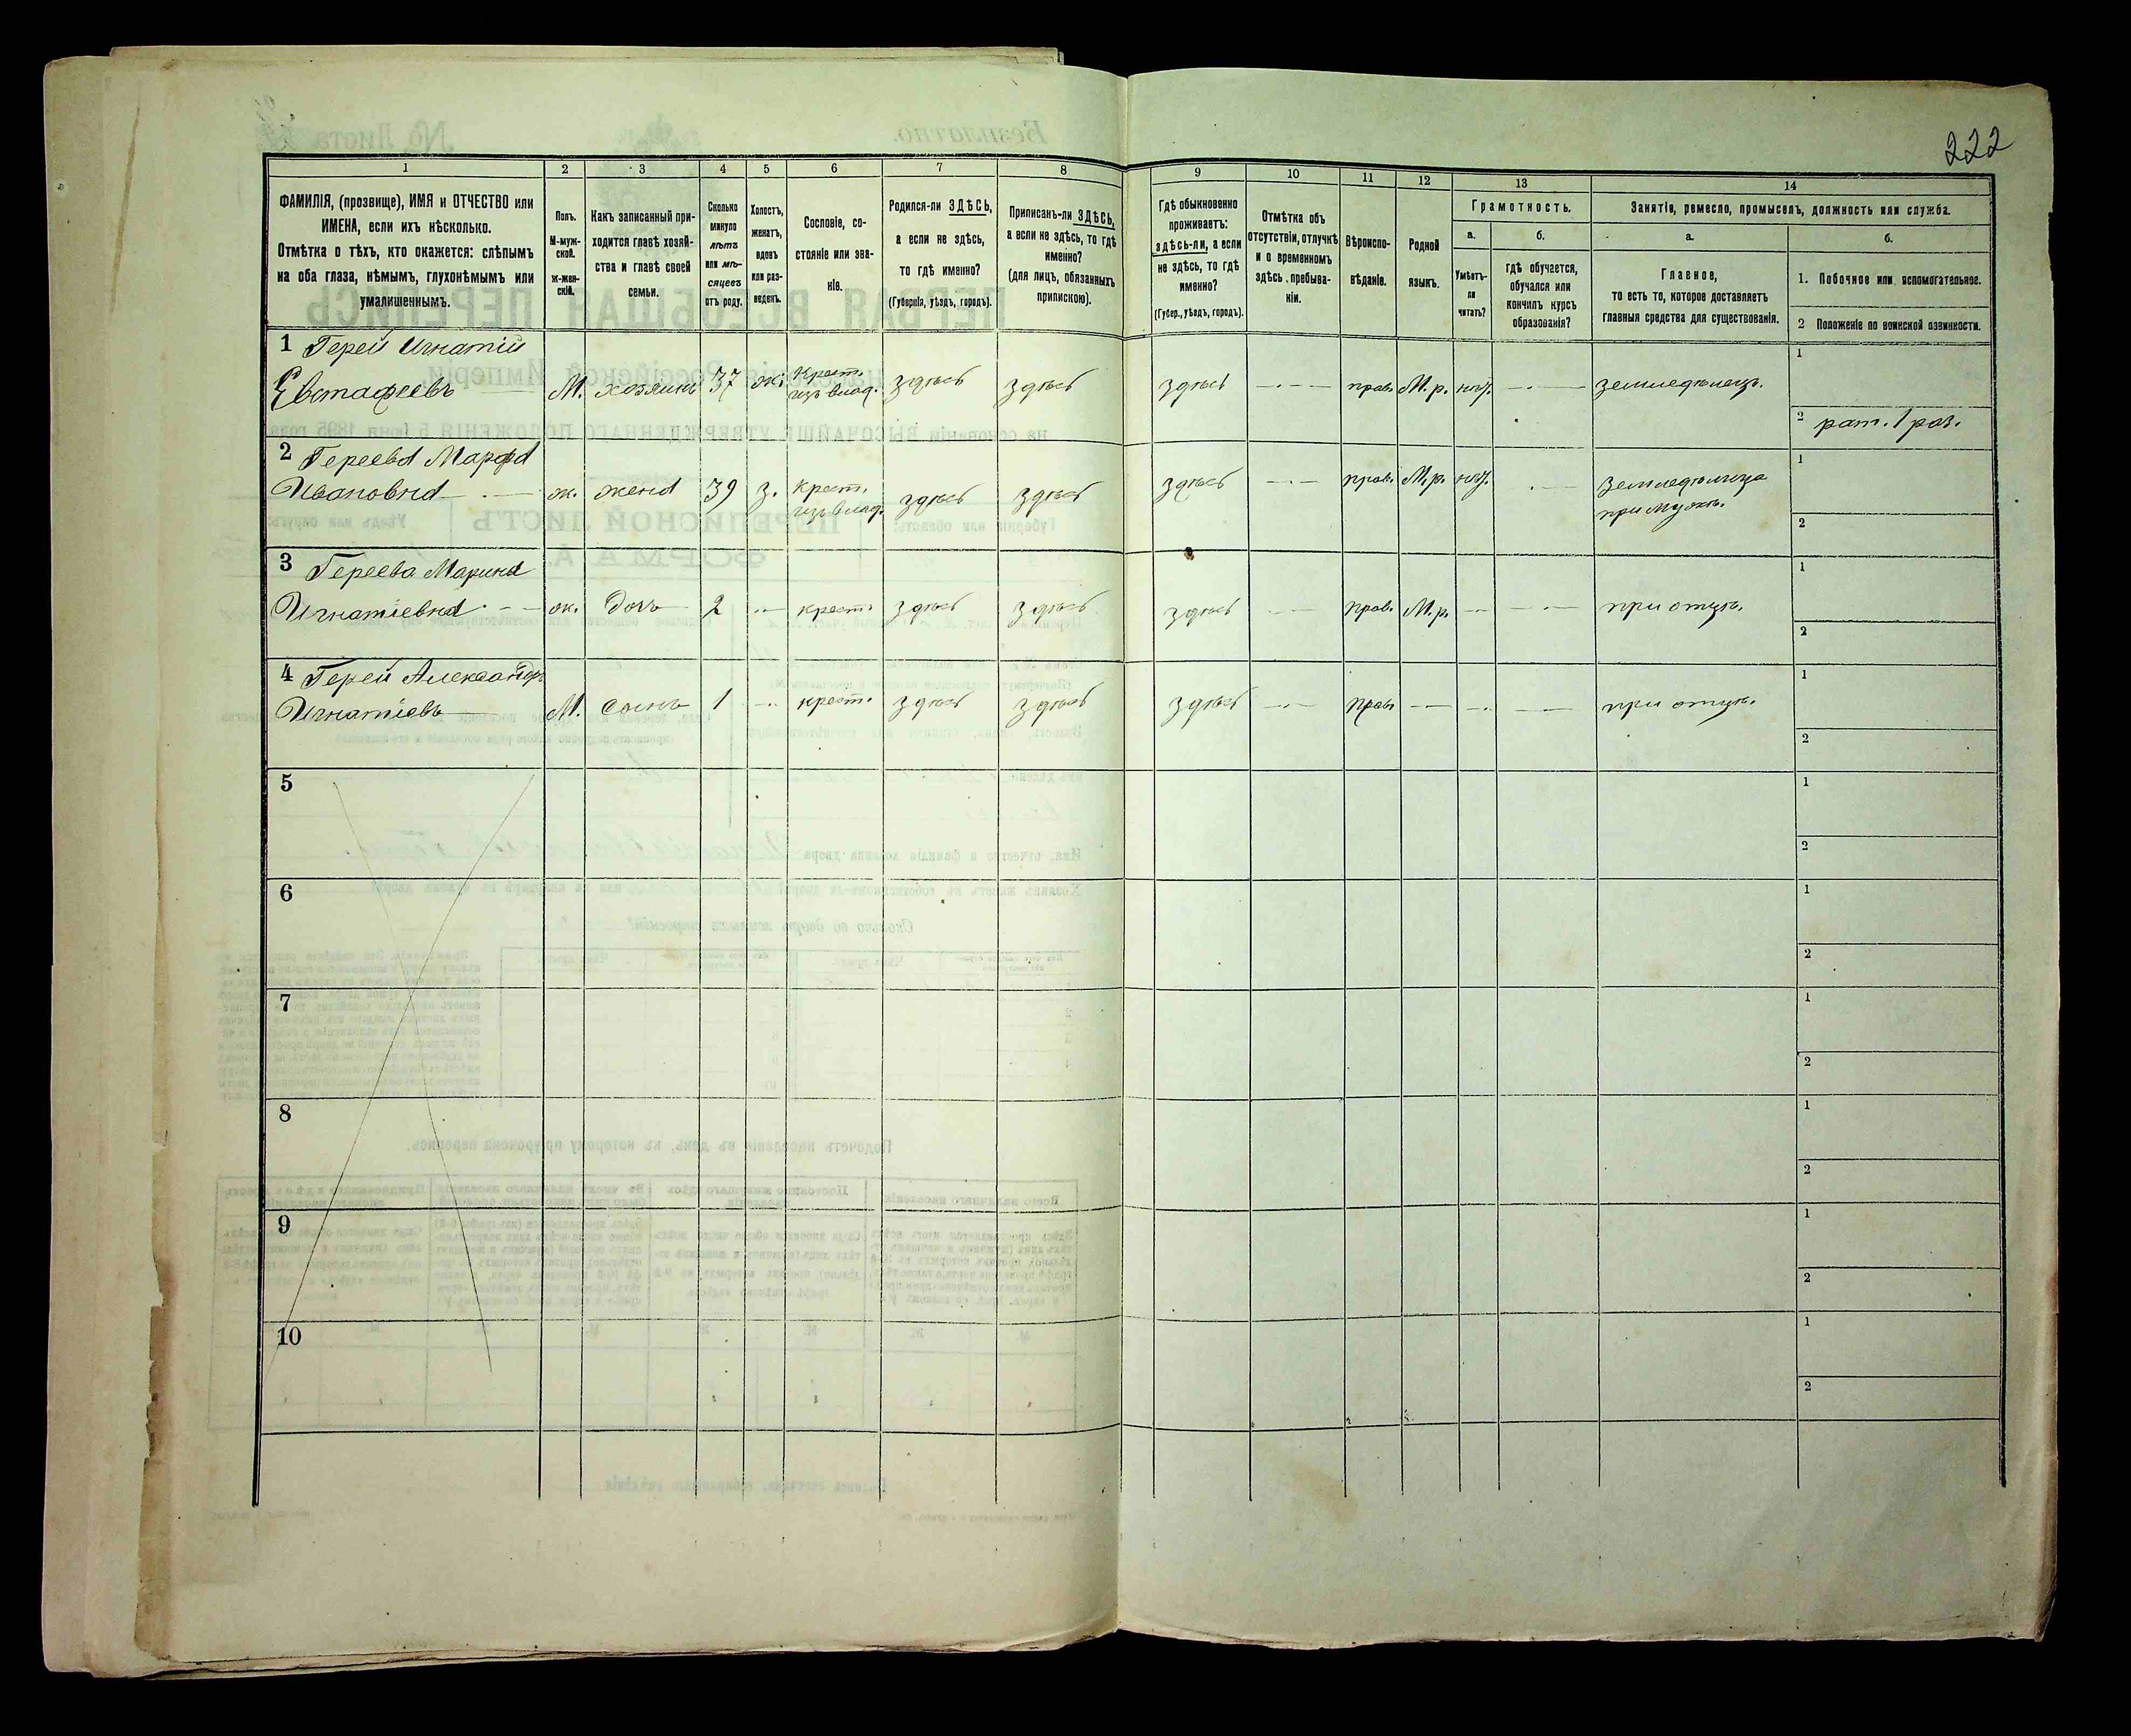 222
1
2
3
4
5
6
7
8
9
10
11
12
13
14
ФАМИЛІЯ, (прозвище), ИМЯ и ОТЧЕСТВО или
ИМЕНА, если ихъ нѣсколько.
Отмѣтка о тѣхъ, кто окажется: слѣпымъ
на оба глаза, нѣмымъ, глухонѣмымъ или
умалишеннымъ.
Полъ.
М-муж-
ской.
ж-жен-
скій.
Какъ записанный при-
ходится главѣ хозяй-
ства и главѣ своей
семьи.
Сколько
минуло
лѣтъ
или мѣ-
сяцевъ
отъ роду.
Холостъ,
женатъ,
вдовъ
или раз-
веденъ.
Сословіе, со-
стояніе или зва-
ніе.
Родился-ли ЗДѢСЬ,
а если не здѣсь,
то гдѣ именно?
(Губернія, уѣздъ, городъ).
Приписанъ-ли ЗДѢСЬ,
а если не здѣсь, то гдѣ
именно?
(для лицъ, обязанныхъ
припискою).
Гдѣ обыкновенно
проживаетъ:
здѣсь-ли, а если
не здѣсь, то гдѣ
именно?
(Губер., уѣздъ, городъ).
Отмѣтка объ
отсутствіи, отлучкѣ
и о временномъ
здѣсь пребыва-
ніи.
Вѣроиспо-
вѣданіе.
Родной
языкъ.
Грамотность.
а.
Умѣетъ-
ли
читать?
б.
гдѣ обучается,
обучался или
кончилъ курсъ
образованія?
Занятіе, ремесло, промыселъ, должность или служба.
а.
Главное,
то есть то, которое доставляетъ
главныя средства для существованія.
б.
1. Побочное или вспомогательное.
2 Положеніе по воинской повинности.
1 Герей Игнатій
Евстафіевъ М. хозяинъ 37 ж. Крест. изъ влад. здѣсь здѣсь здѣсь прав. М.р. нѣт. земледѣлецъ.
1
2 рат. 1 раз.
2 Гереева Марфа
Ивановна ж. жена 39 з. крест. изъ влад. здѣсь здѣсь здѣсь прав. М.р. нѣт. земледѣлица
при мужѣ.
1
2
3 Гереева Марина
Игнатіевна ж. дочь 2 крест. здѣсь здѣсь здѣсь прав. М.р. при отцѣ.
1
2
4 Герей Александръ
Игнатіевъ М. сынъ 1 крест. здѣсь здѣсь здѣсь прав при отцѣ.
1
2
5
1
2
6
1
2
7
1
2
8
1
2
9
1
2
10
1
2